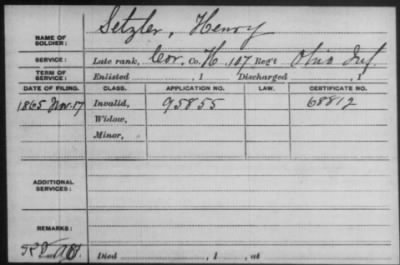 NAME OF SOLDIER: Setzler, Henry
SERVICE: Late rank, Cor. Co. H, 107 Reg't Ohio Inf.
TERM OF SERVICE: Enlisted , 1 Discharged , 1
DATE OF FILING. CLASS. APPLICATION NO. LAW. CERTIFICATE NO.
1865 Nov. 17 Invalid, 95855 68812
Widow,
Minor,
ADDITIONAL SERVICES:
REMARKS:
Died , 1 , at